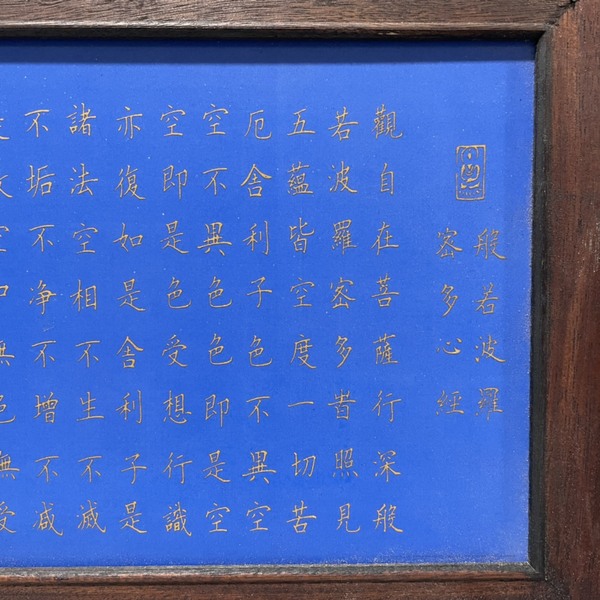 般若波羅
密多心經
觀自在菩薩行深般
若波羅密多旹照見
五蘊皆空度一切苦
厄舍利子色不異空
空不異色色即是空
空即是色受想行識
亦復如是舍利子是
諸法空相不生不滅
不垢不净不增不减